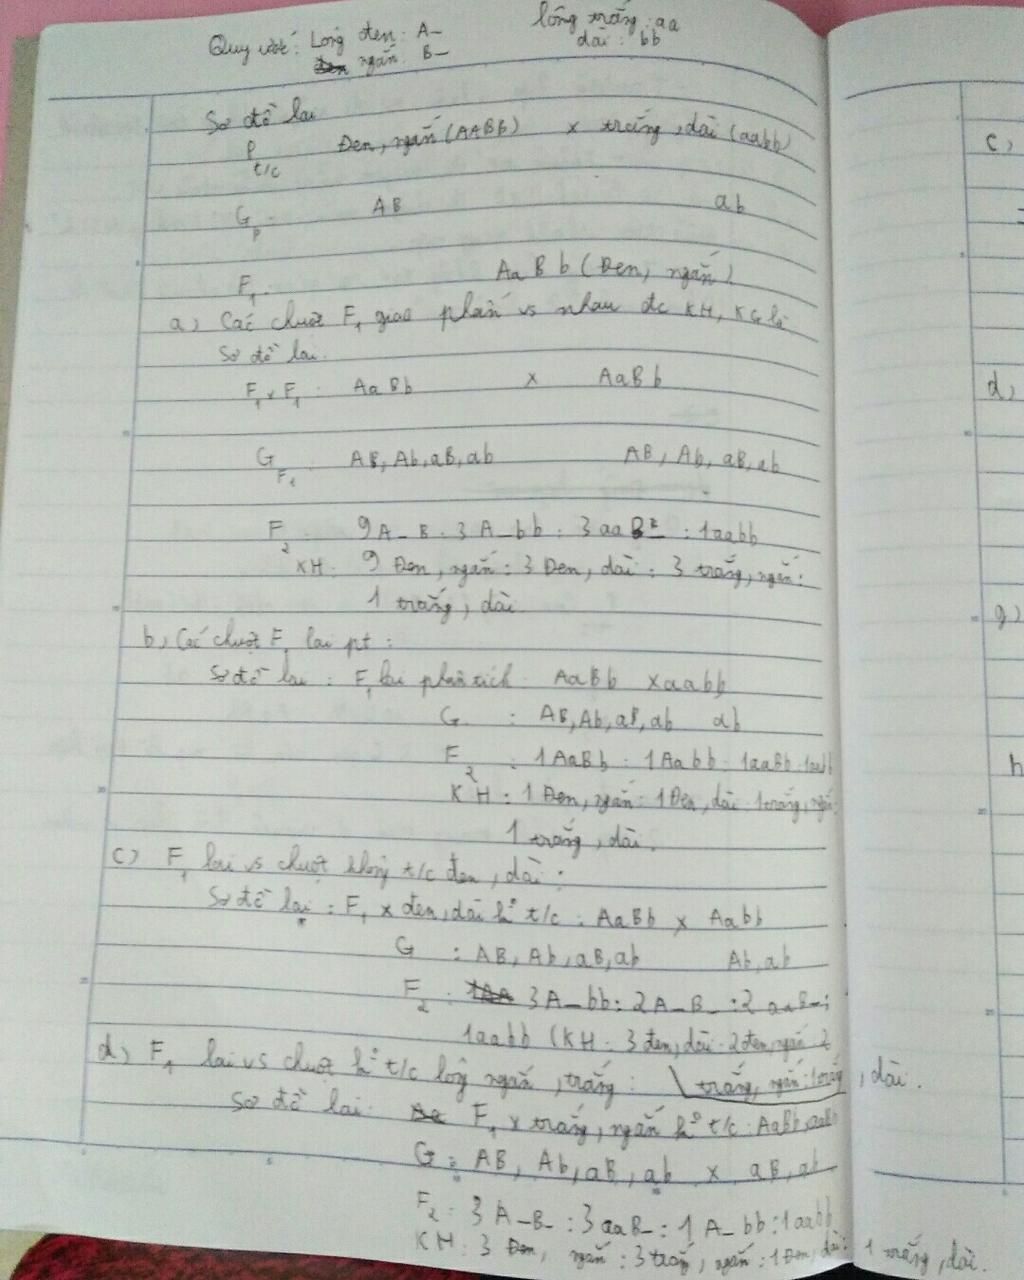 Quy ước: Lông đen: A_ lông trắng: aa
ngắn: B_ dài: bb
Sơ đồ lai
P t/c Đen, ngắn (AABB) x trắng, dài (aabb)
G_P: AB ab
F1: AaBb (Đen, ngắn)
a) Các chuột F1 giao phấn vs nhau đc KH, KG là
Sơ đồ lai.
F1 x F1: AaBb x AaBb
G_F1: AB, Ab, aB, ab AB, Ab, aB, ab
F2: 9A_B_: 3A_bb: 3aaB_: 1aabb
KH: 9 Đen, ngắn: 3 Đen, dài: 3 trắng, ngắn:
1 trắng, dài.
b, Các chuột F1 lai pt:
Sơ đồ lai: F1 lai phân tích: AaBb x aabb
G: AB, Ab, aB, ab ab
F2: 1AaBb: 1Aabb: 1aaBb: 1aabb
KH: 1 Đen, ngắn: 1 Đen, dài: 1 trắng, ngắn:
1 trắng, dài.
c) F1 lai vs chuột không t/c đen, dài:
Sơ đồ lai: F1 x đen, dài k° t/c: AaBb x Aabb
G: AB, Ab, aB, ab Ab, ab
F2: 3A_bb: 2A_B_: 2aaB_:
1aabb (KH: 3 đen, dài: 2 đen, ngắn: 2
trắng, ngắn: 1 trắng, dài.
d) F1 lai vs chuột k° t/c lông ngắn, trắng:
Sơ đồ lai: F1 x trắng, ngắn k° t/c: AaBb, aaBb
G: AB, Ab, aB, ab x aB, ab
F2: 3A_B_: 3aaB_: 1A_bb: 1aabb
KH: 3 Đen, ngắn: 3 trắng, ngắn: 1 Đen, dài: 1 trắng, dài.
c,
d,
g)
h